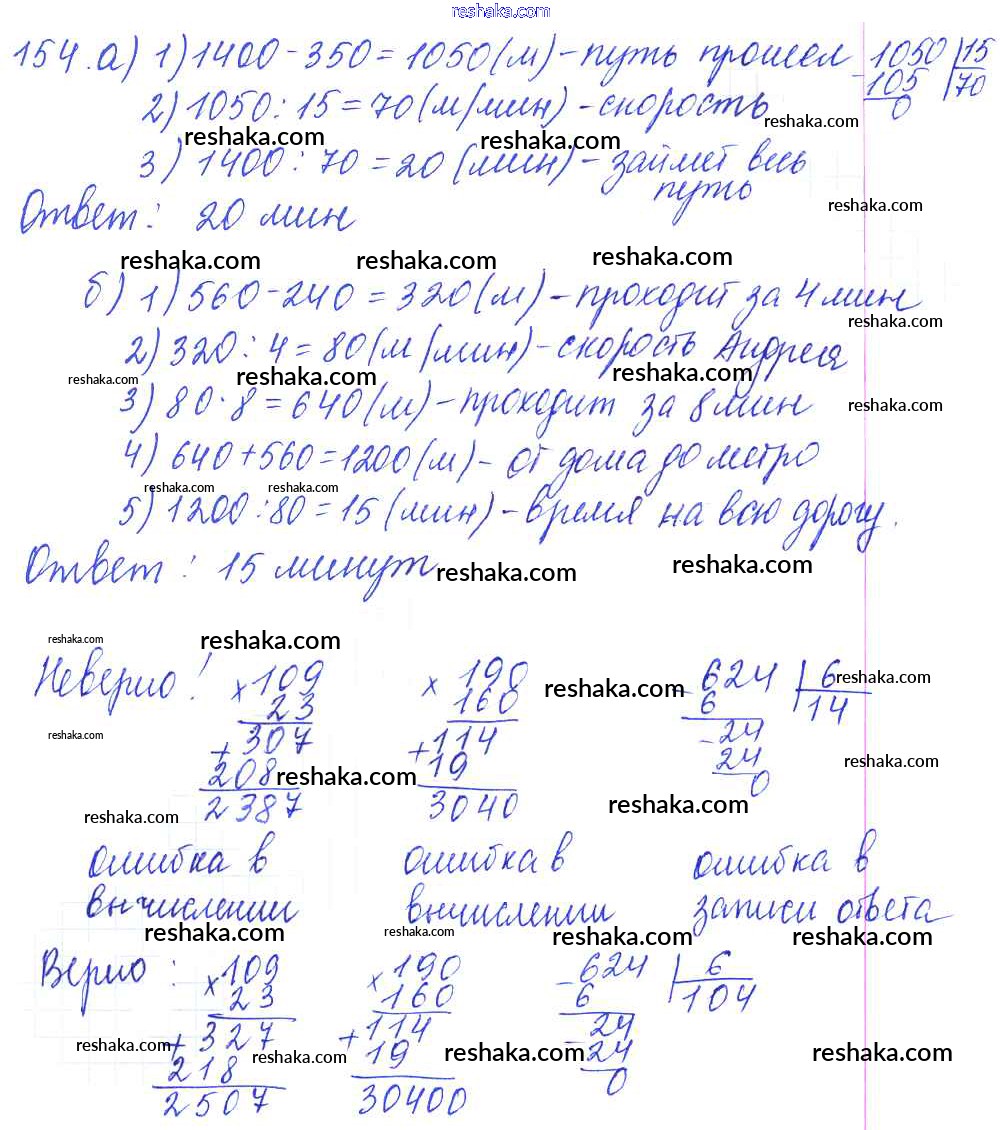 reshaka.com
154. а) 1) 1400 - 350 = 1050 (м) - путь прошел
1050 | 15
- 105 | 70
0
2) 1050 : 15 = 70 (м/мин) - скорость
reshaka.com
reshaka.com reshaka.com
3) 1400 : 70 = 20 (мин) - займет весь
путь
reshaka.com
Ответ: 20 мин
reshaka.com reshaka.com reshaka.com
б) 1) 560 - 240 = 320 (м) - проходит за 4 мин
reshaka.com
2) 320 : 4 = 80 (м/мин) - скорость Андрея
reshaka.com reshaka.com reshaka.com
3) 80 · 8 = 640 (м) - проходит за 8 мин
reshaka.com
4) 640 + 560 = 1200 (м) - от дома до метро
reshaka.com reshaka.com
5) 1200 : 80 = 15 (мин) - время на всю дорогу.
Ответ: 15 минут
reshaka.com reshaka.com
reshaka.com reshaka.com
Неверно!
× 109
23
+ 307
208
2387
× 190
160
+ 114
19
3040
- 624 | 6
6 | 14
- 24
24
0
reshaka.com reshaka.com
reshaka.com
reshaka.com reshaka.com
reshaka.com reshaka.com
ошибка в
вычислении
ошибка в
вычислении
ошибка в
записи ответа
reshaka.com reshaka.com reshaka.com reshaka.com
Верно:
× 109
23
+ 327
218
2507
× 190
160
+ 114
19
30400
- 624 | 6
6 | 104
- 24
24
0
reshaka.com reshaka.com reshaka.com reshaka.com